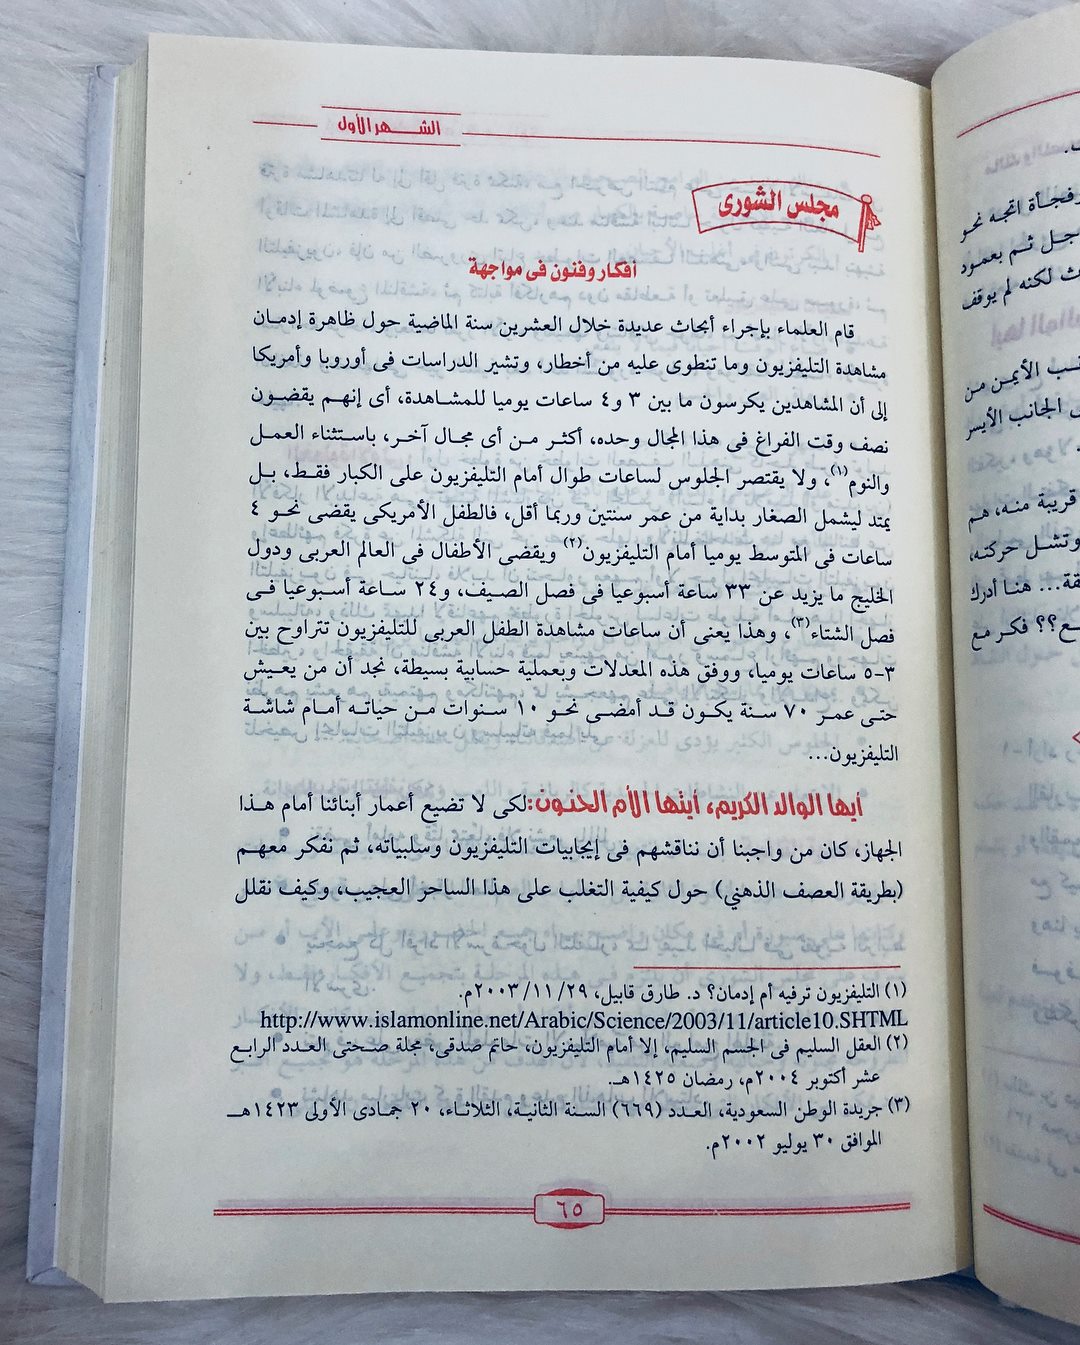 الشهر الأول
مجلس الشورى
أفكار وفنون فى مواجهة
قام العلماء بإجراء أبحاث عديدة خلال العشرين سنة الماضية حول ظاهرة إدمان
مشاهدة التليفزيون وما تنطوى عليه من أخطار، وتشير الدراسات فى أوروبا وأمريكا
إلى أن المشاهدين يكرسون ما بين ٣ و٤ ساعات يوميا للمشاهدة، أى إنهم يقضون
نصف وقت الفراغ فى هذا المجال وحده، أكثر من أى مجال آخر، باستثناء العمل
والنوم(١)، ولا يقتصر الجلوس لساعات طوال أمام التليفزيون على الكبار فقط، بل
يمتد ليشمل الصغار بداية من عمر سنتين وربما أقل، فالطفل الأمريكى يقضى نحو ٤
ساعات فى المتوسط يوميا أمام التليفزيون(٢) ويقضى الأطفال فى العالم العربى ودول
الخليج ما يزيد عن ٣٣ ساعة أسبوعيا فى فصل الصيف، و٢٤ ساعة أسبوعيا فى
فصل الشتاء(٣)، وهذا يعنى أن ساعات مشاهدة الطفل العربى للتليفزيون تتراوح بين
٣-٥ ساعات يوميا، ووفق هذه المعدلات وبعملية حسابية بسيطة، نجد أن من يعيش
حتى عمر ٧٠ سنة يكون قد أمضى نحو ١٠ سنوات من حياته أمام شاشة
التليفزيون...
أيها الوالد الكريم، أيتها الأم الحنون: لكى لا تضيع أعمار أبنائنا أمام هذا
الجهاز، كان من واجبنا أن نناقشهم فى إيجابيات التليفزيون وسلبياته، ثم نفكر معهم
(بطريقة العصف الذهني) حول كيفية التغلب على هذا الساحر العجيب، وكيف نقلل
(١) التليفزيون ترفيه أم إدمان؟ د. طارق قابيل، ٢٩/١١/٢٠٠٣م.
http://www.islamonline.net/Arabic/Science/2003/11/article10.SHTML
(٢) العقل السليم فى الجسم السليم، إلا أمام التليفزيون، حاتم صدقى، مجلة صحتى العدد الرابع
عشر أكتوبر ٢٠٠٤م، رمضان ١٤٢٥هـ.
(٣) جريدة الوطن السعودية، العدد (٦٦٩) السنة الثانية، الثلاثاء، ٢٠ جمادى الأولى ١٤٢٣هـ
الموافق ٣٠ يوليو ٢٠٠٢م.
٦٥
رفجأة اتجه نحو
جل ثم بعمود
ث لكنه لم يوقف
الأيمن من
الجانب الأيسر
قريبة منه، هم
وتشل حركته،
قة... هنا أدرك
ع؟؟ فكر مع